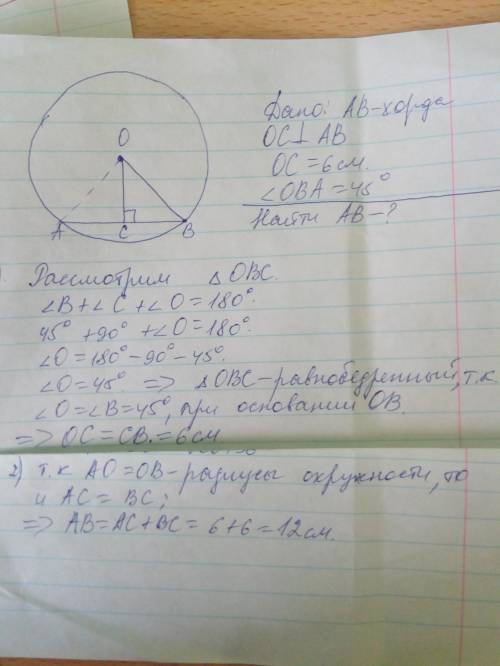 O
A
C
B
Дано: AB-хорда
OC⊥ AB
OC = 6 см.
∠OBA = 45°
Найти AB-?
Рассмотрим △OBC.
∠B+∠C+∠O=180°.
45° +90° +∠O=180°.
∠O=180°-90°-45°.
∠O=45° => △OBC-равнобедренный, т.к
∠O=∠B=45°, при основании OB.
=> OC=CB.=6см
2) т.к AO=OB-радиусы окружности, то
и AC = BC;
=> AB=AC+BC= 6+6=12см.